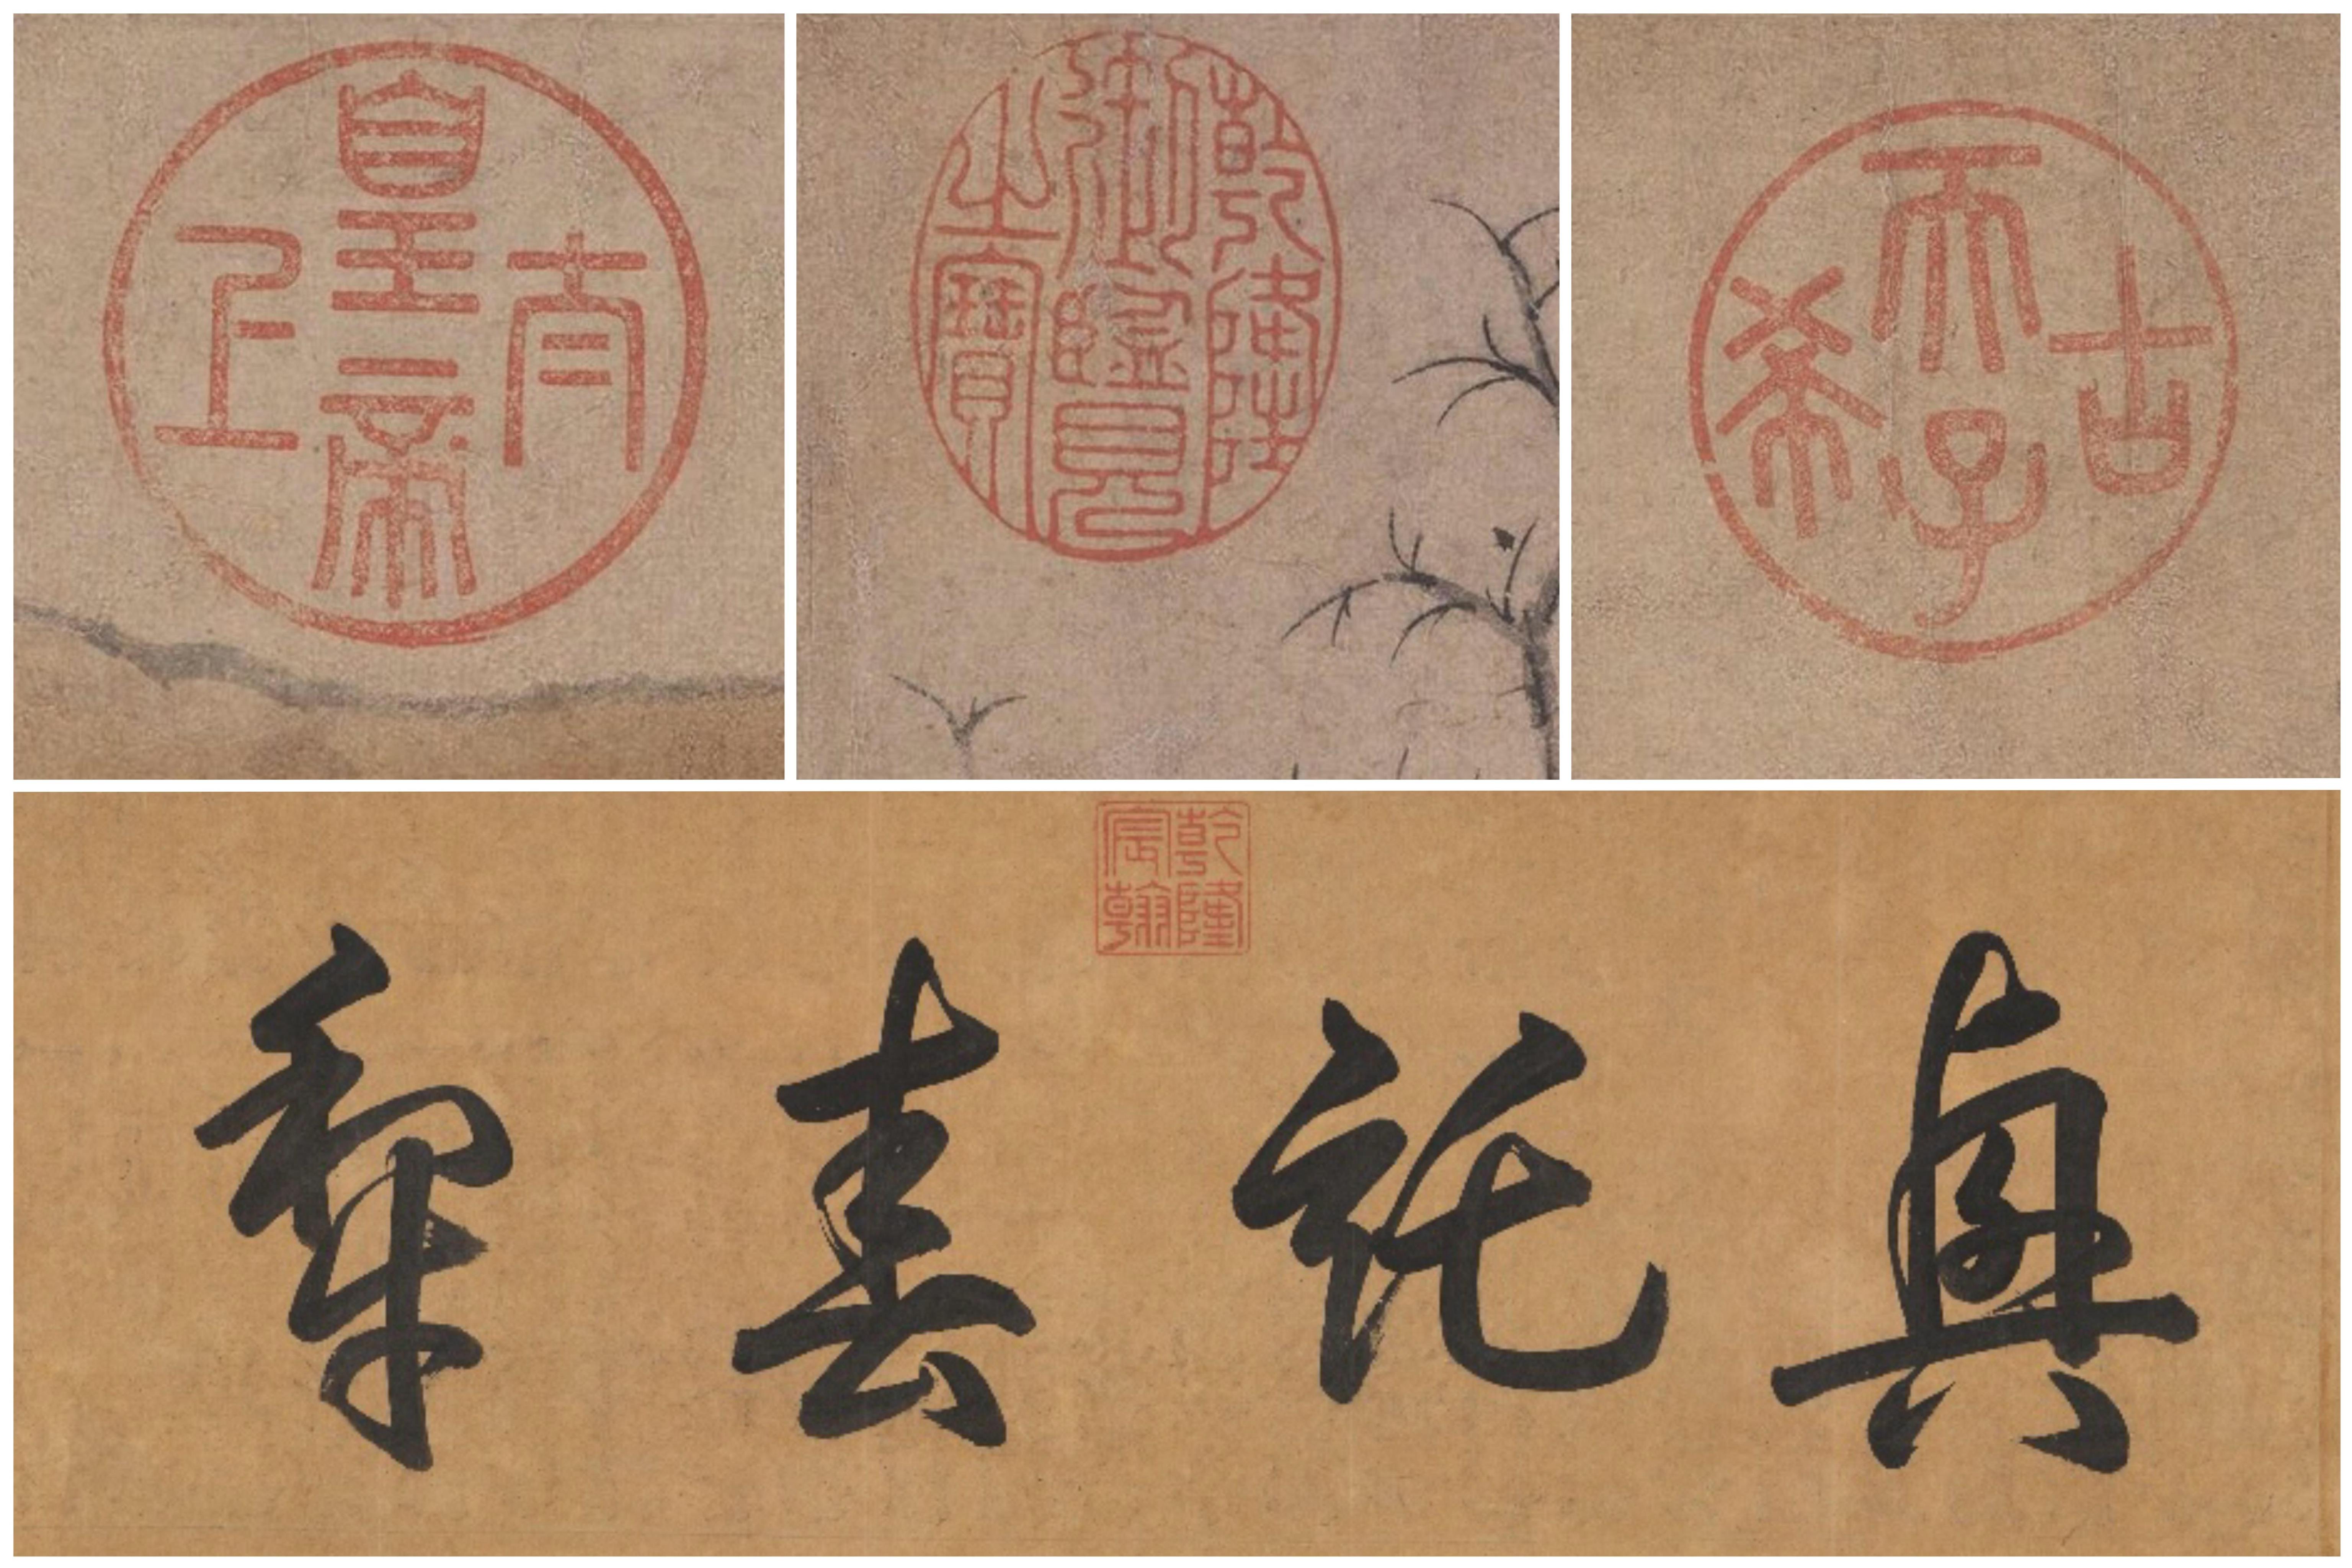 太上皇帝
乾隆御覽之寶
古希天子
乾隆宸翰
興託春犁